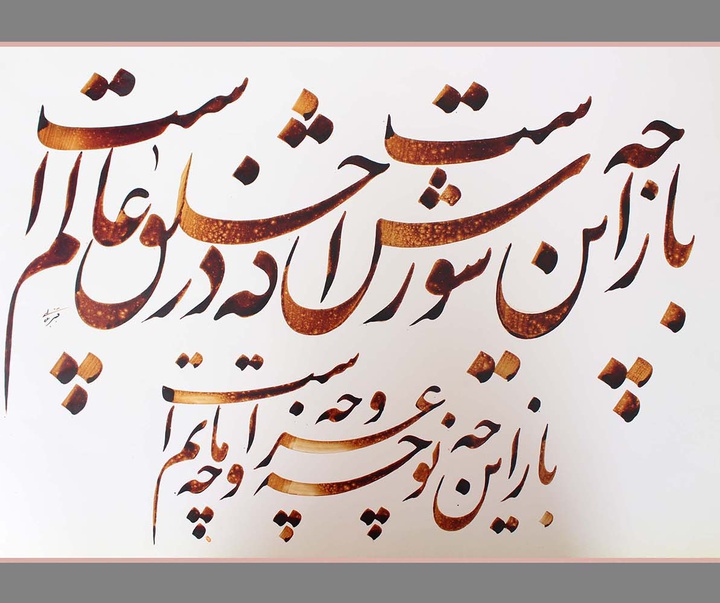 باز این چه شورش است که در خلق عالم است
باز این چه نوحه و چه عزا و چه ماتم است